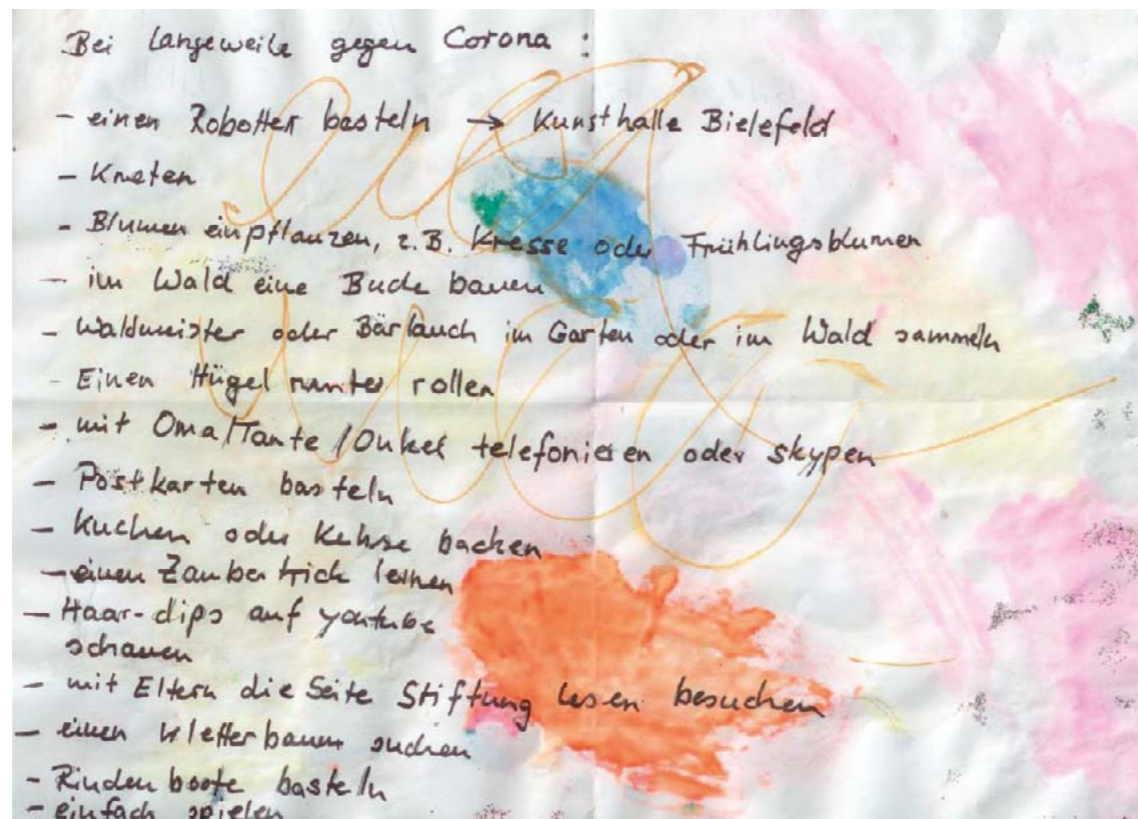 Bei Langeweile gegen Corona :
- einen Robotter basteln → Kunsthalle Bielefeld
- Kneten
- Blumen einpflanzen, z.B. Kresse oder Frühlingsblumen
- im Wald eine Bude bauen
- Waldmeister oder Bärlauch im Garten oder im Wald sammeln
- Einen Hügel runter rollen
- mit Oma/Tante/Onkel telefonieren oder skypen
- Postkarten basteln
- Kuchen oder Kekse backen
- einen Zaubertrick lernen
- Haar-dips auf youtube
schauen
- mit Eltern die Seite Stiftung lesen besuchen
- einen Kletterbaum suchen
- Rindenboote basteln
- einfach spielen